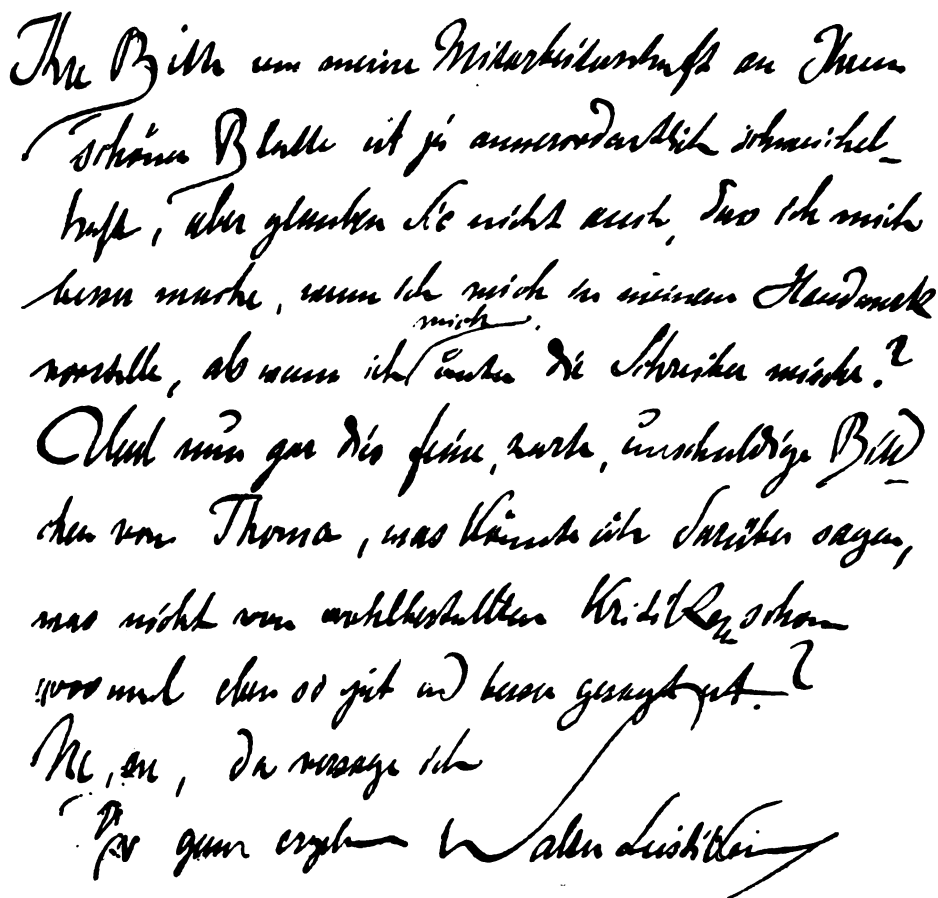 Ihre Bitte um meine Mitarbeiterschaft an Ihrem
schönen Blatte ist ja ausserordentlich schmeichel-
haft, aber glauben Sie nicht auch, dass ich mich
besser mache, wenn ich mich in meinem Handwerk
vorstelle, als wenn ich mich unter die Schreiber mische?
Und nun gar dies feine, zarte, unschuldige Bild-
chen von Thoma, was könnte ich darüber sagen,
was nicht von wohlbestallten Kritikern schon
mal eben so gut und besser gesagt ist?
Ne, ne, da versage ich
Ihr ganz ergebener Walter Leistikow